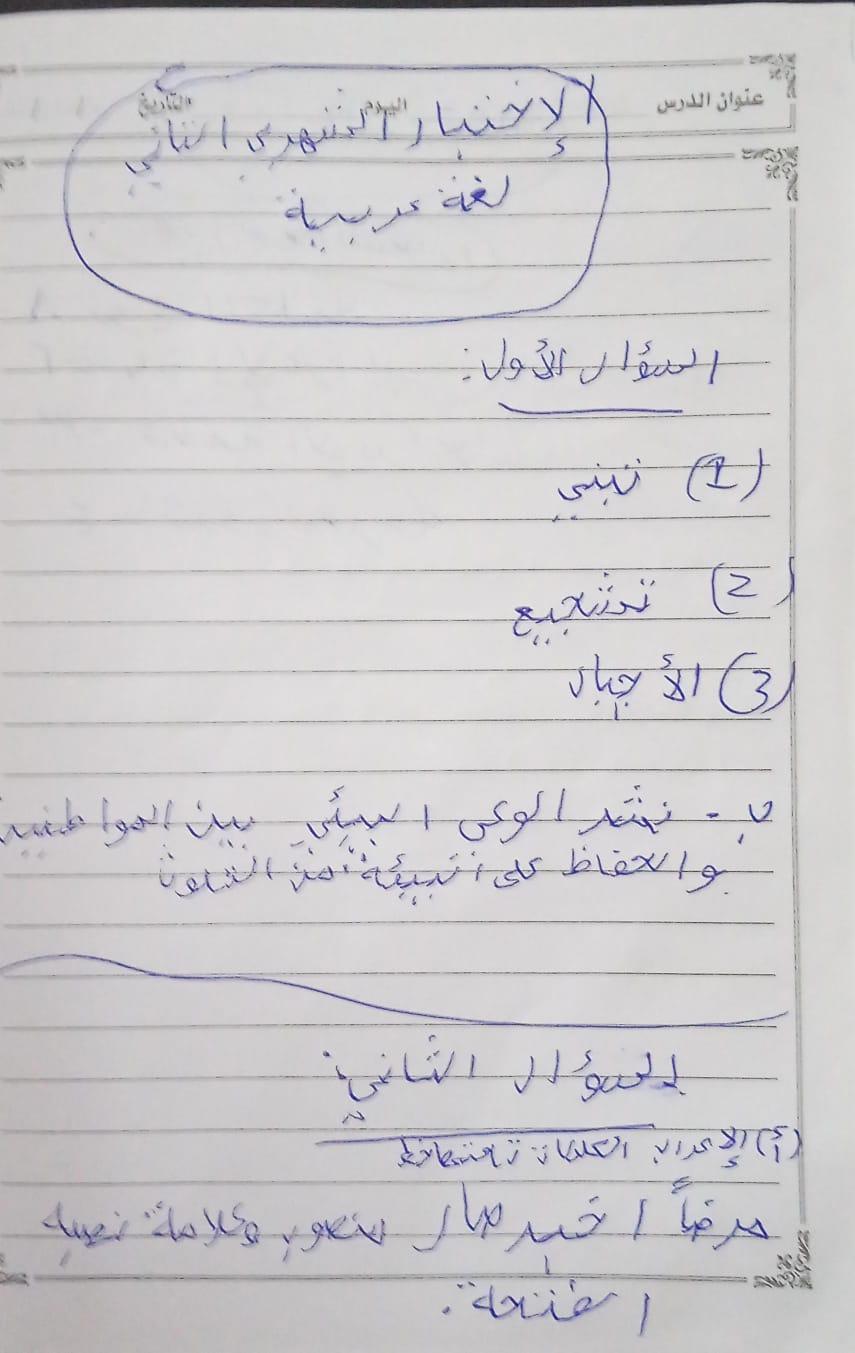 عنوان الدرس اليوم التاريخ
الإختبار الشهري الثاني
لغة عربية
السؤال الأول:
(1) تبني
(2) تشجيع
(3) الأجبار
ب - نشر الوعي البيئي بين المواطنين
والحفاظ على البيئة من التلوث
السؤال الثاني:
(أ) الإعراب الكلمات تحتها خط
مرضاً / خبر صار منصوب وعلامة نصبه
الفتحة.